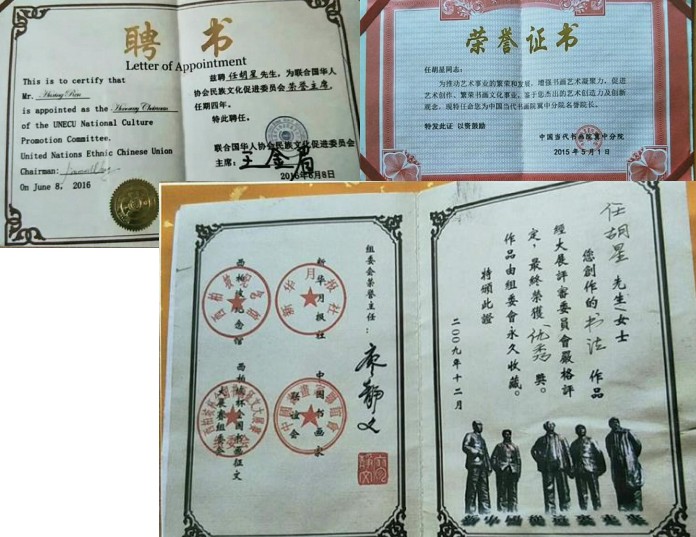 聘 书
Letter of Appointment
This is to certify that
Mr.
is appointed as the Honorary Chairman
of the UNECU National Culture
Promotion Committee.
United Nations Ethnic Chinese Union
Chairman:
On June 8, 2016
兹聘 任胡星 先生，为联合国华人
协会民族文化促进委员会 荣誉主席，
任期四年。
特此聘任。
联合国华人协会民族文化促进委员会
主席：王金眉
2016年6月8日
荣誉证书
任胡星同志：
为推动艺术事业的繁荣和发展，增强书画艺术凝聚力，促进
艺术创作、繁荣书画文化事业，鉴于您杰出的艺术创造力及创新
观念，现特任命您为中国当代书画院冀中分院名誉院长。
特发此证 以资鼓励
中国当代书画院冀中分院
2015年5月1日
任胡星 先生/女士
您創作的 书法 作品
經大展評審委員會嚴格評
定，最終榮獲 优秀 獎。
作品由組委會永久收藏。
特頒此證
二〇〇九年十二月
組委會榮譽主任：
廖静文
新华月报社
西柏坡纪念馆
中国书画家
联谊会
西柏坡杯全国书画征文
大展赛组委会